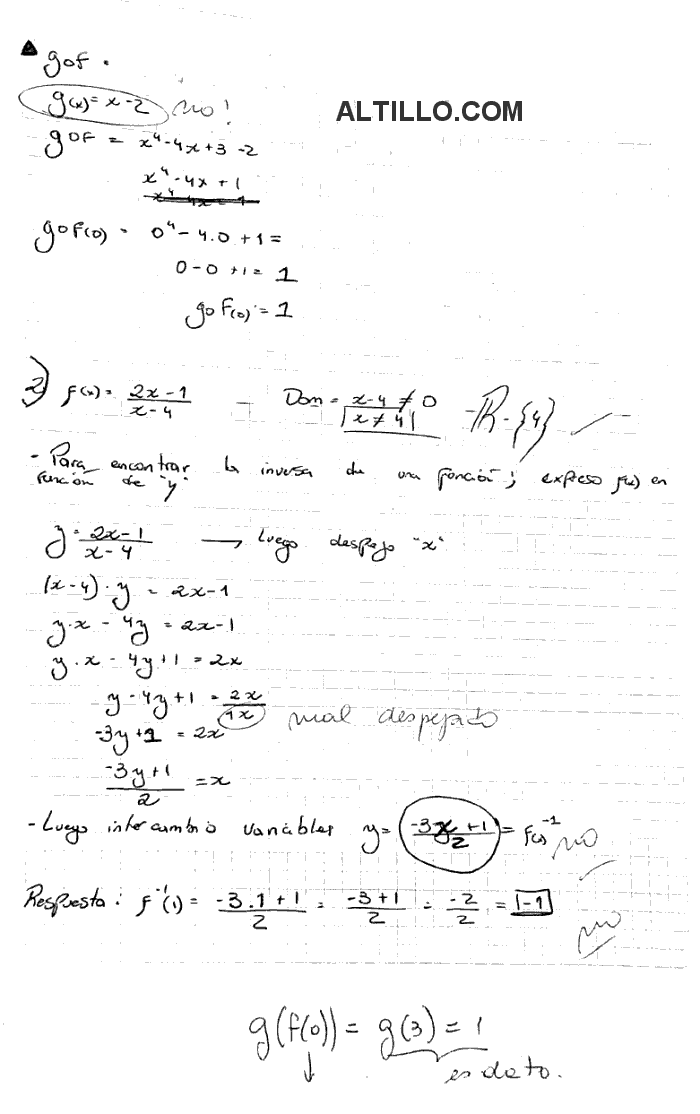 ▲ gof.
g(x) = x-2 no!
ALTILLO.COM
gof = x⁴-4x+3-2
x⁴-4x+1
gof(0) = 0⁴-4.0+1=
0-0+1= 1
gof(0) = 1
2) f(x) = (2x-1)/(x-4) - Dom = x-4 ≠ 0 -ℝ-{4}
x ≠ 4
- Para encontrar la inversa de una función; expreso f(x) en
función de "y"
y = (2x-1)/(x-4) → Luego despejo "x"
(x-4)·y = 2x-1
y·x - 4y = 2x-1
y·x - 4y+1 = 2x
y-4y+1 = 2x/1x mal despejado
-3y+1 = 2x
(-3y+1)/2 = x
- Luego intercambio variables y = (-3x+1)/2 = f(x)⁻¹ no
Respuesta: f⁻¹(1) = (-3.1+1)/2 = (-3+1)/2 = -2/2 = |-1|
no
g(f(0)) = g(3) = 1
↓ es dato.